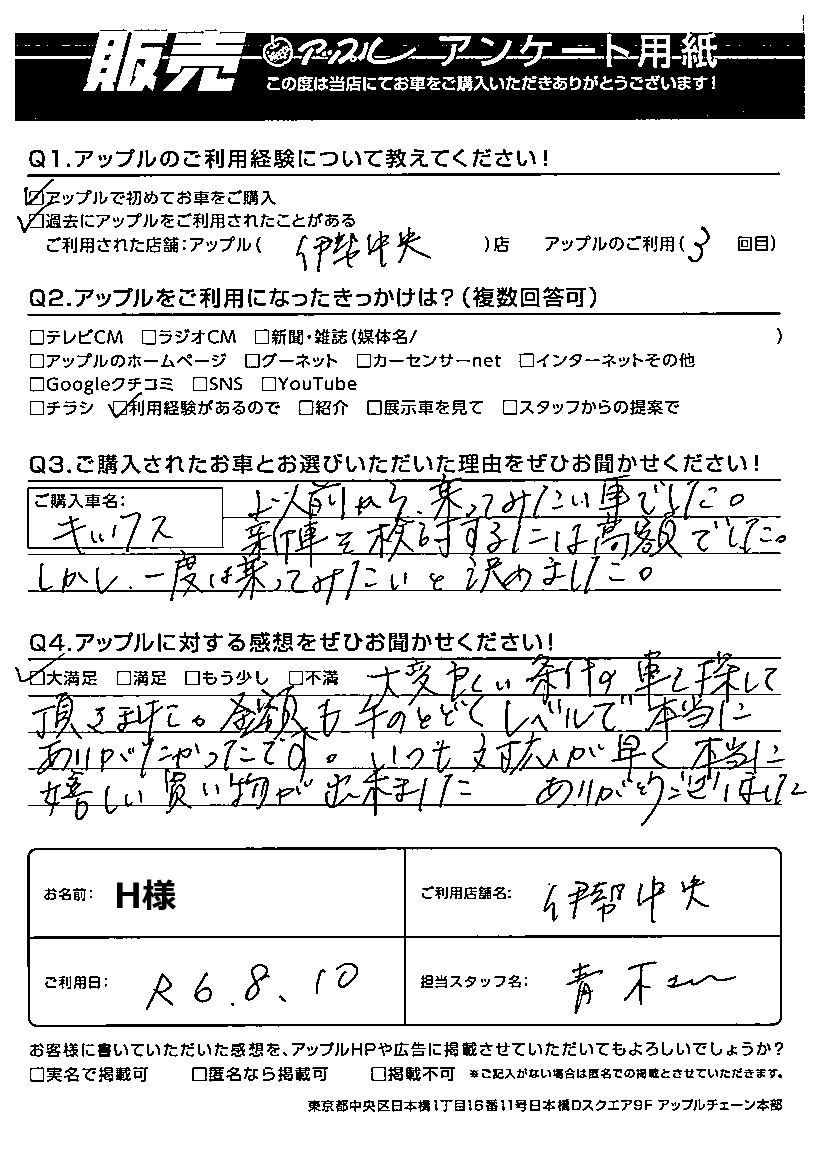 販売 アップル アンケート用紙
この度は当店にてお車をご購入いただきありがとうございます!
Q1.アップルのご利用経験について教えてください!
☑アップルで初めてお車をご購入
☑過去にアップルをご利用されたことがある
ご利用された店舗:アップル( 伊勢中央 )店 アップルのご利用( 3 回目)
Q2.アップルをご利用になったきっかけは?(複数回答可)
□テレビCM □ラジオCM □新聞・雑誌(媒体名/ )
□アップルのホームページ □グーネット □カーセンサーnet □インターネットその他
□Googleクチコミ □SNS □YouTube
□チラシ ☑利用経験があるので □紹介 □展示車を見て □スタッフからの提案で
Q3.ご購入されたお車とお選びいただいた理由をぜひお聞かせください!
ご購入車名: キックス
以前から、乗ってみたい車でした。
新車を検討するには高額でした。
しかし、一度は乗ってみたいと決めました。
Q4.アップルに対する感想をぜひお聞かせください!
☑大満足 □満足 □もう少し □不満 大変良い条件の車を探して
頂きました。金額も手のとどくレベルで本当に
ありがたかったです。いつも対応が早く本当に
嬉しい買い物が出来ました ありがとうございました
お名前: H様 ご利用店舗名: 伊勢中央
ご利用日: R6.8.10 担当スタッフ名: 青木
お客様に書いていただいた感想を、アップルHPや広告に掲載させていただいてもよろしいでしょうか?
□実名で掲載可 □匿名なら掲載可 □掲載不可 ※ご記入がない場合は匿名での掲載とさせていただきます。
東京都中央区日本橋1丁目16番11号日本橋Dスクエア9F アップルチェーン本部